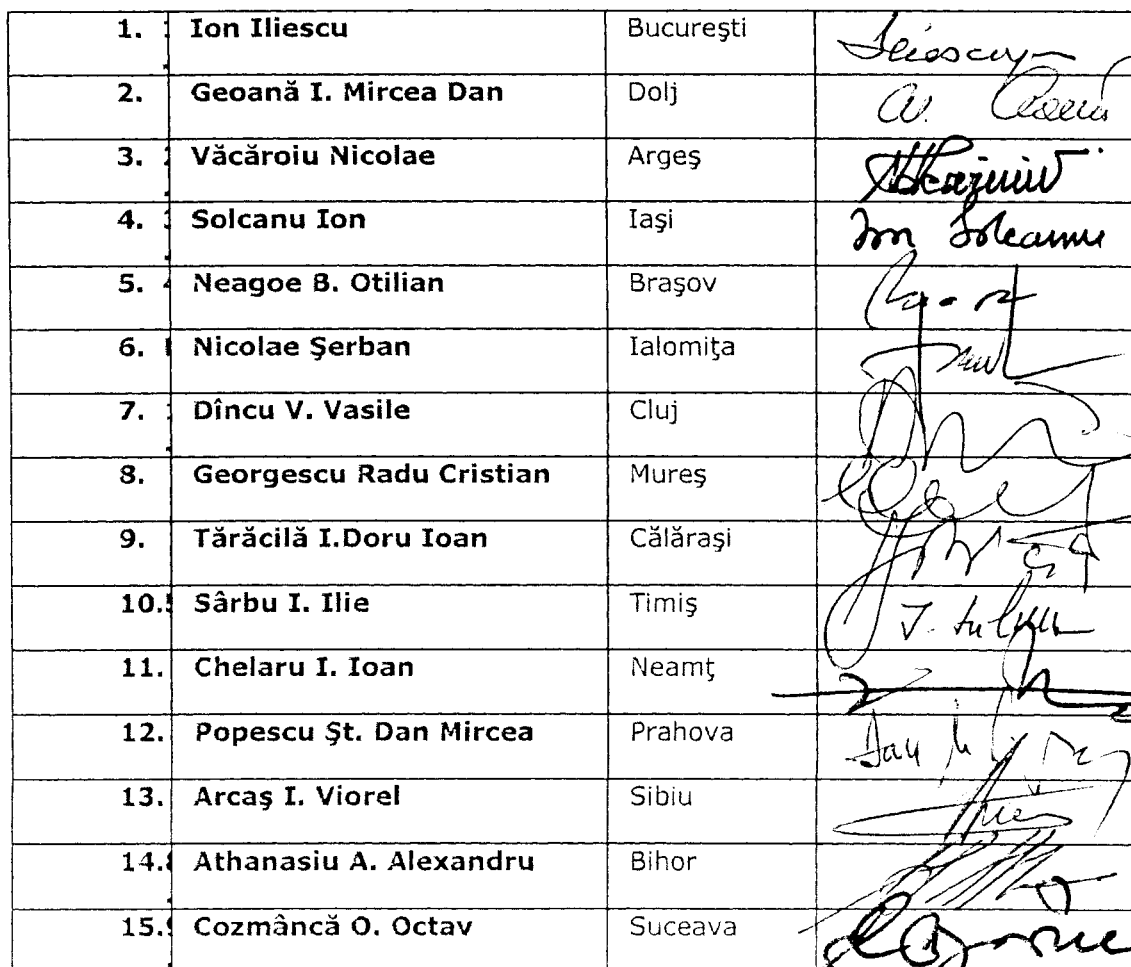 1. Ion Iliescu Bucureşti Iliescu
2. Geoană I. Mircea Dan Dolj
3. Văcăroiu Nicolae Argeş
4. Solcanu Ion Iaşi Ion Solcanu
5. Neagoe B. Otilian Braşov
6. Nicolae Şerban Ialomiţa
7. Dîncu V. Vasile Cluj
8. Georgescu Radu Cristian Mureş
9. Tărăcilă I.Doru Ioan Călăraşi
10. Sârbu I. Ilie Timiş
11. Chelaru I. Ioan Neamţ
12. Popescu Şt. Dan Mircea Prahova Dan
13. Arcaş I. Viorel Sibiu
14. Athanasiu A. Alexandru Bihor
15. Cozmâncă O. Octav Suceava